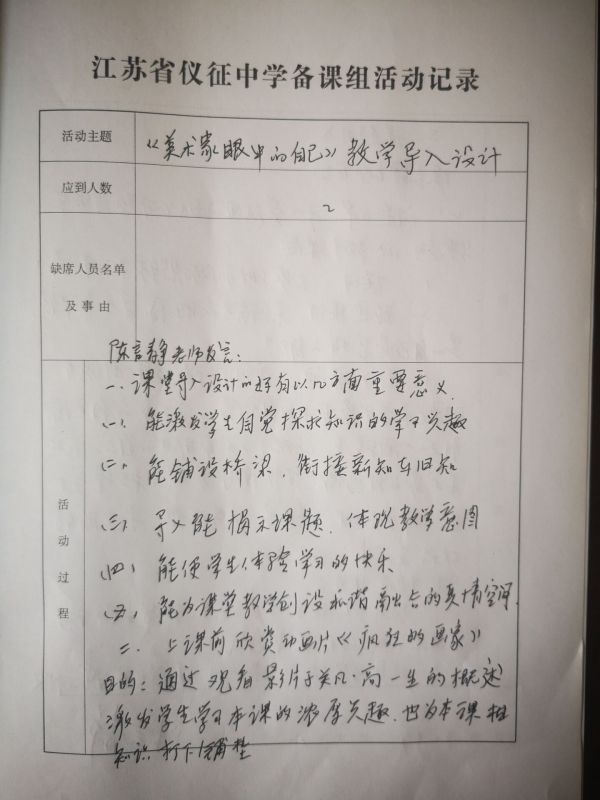 江苏省仪征中学备课组活动记录
活动主题 《美术家眼中的自己》教学导入设计
应到人数 2
缺席人员名单
及事由
陈言静老师发言:
一、课堂导入设计的好有以几方面重要意义
(一)、能激发学生自觉探求知识的学习兴趣
(二)、能铺设桥梁、衔接新知与旧知
(三)、导入能揭示课题、体现教学意图
(四)、能使学生体验学习的快乐
(五)、能为课堂教学创设和谐融合的真情空间.
二、上课前欣赏动画片《疯狂的画家》
目的:通过观看影片了关凡·高一生的概述
激发学生学习本课的浓厚兴趣.也为本课相
知识打下铺垫
活动过程